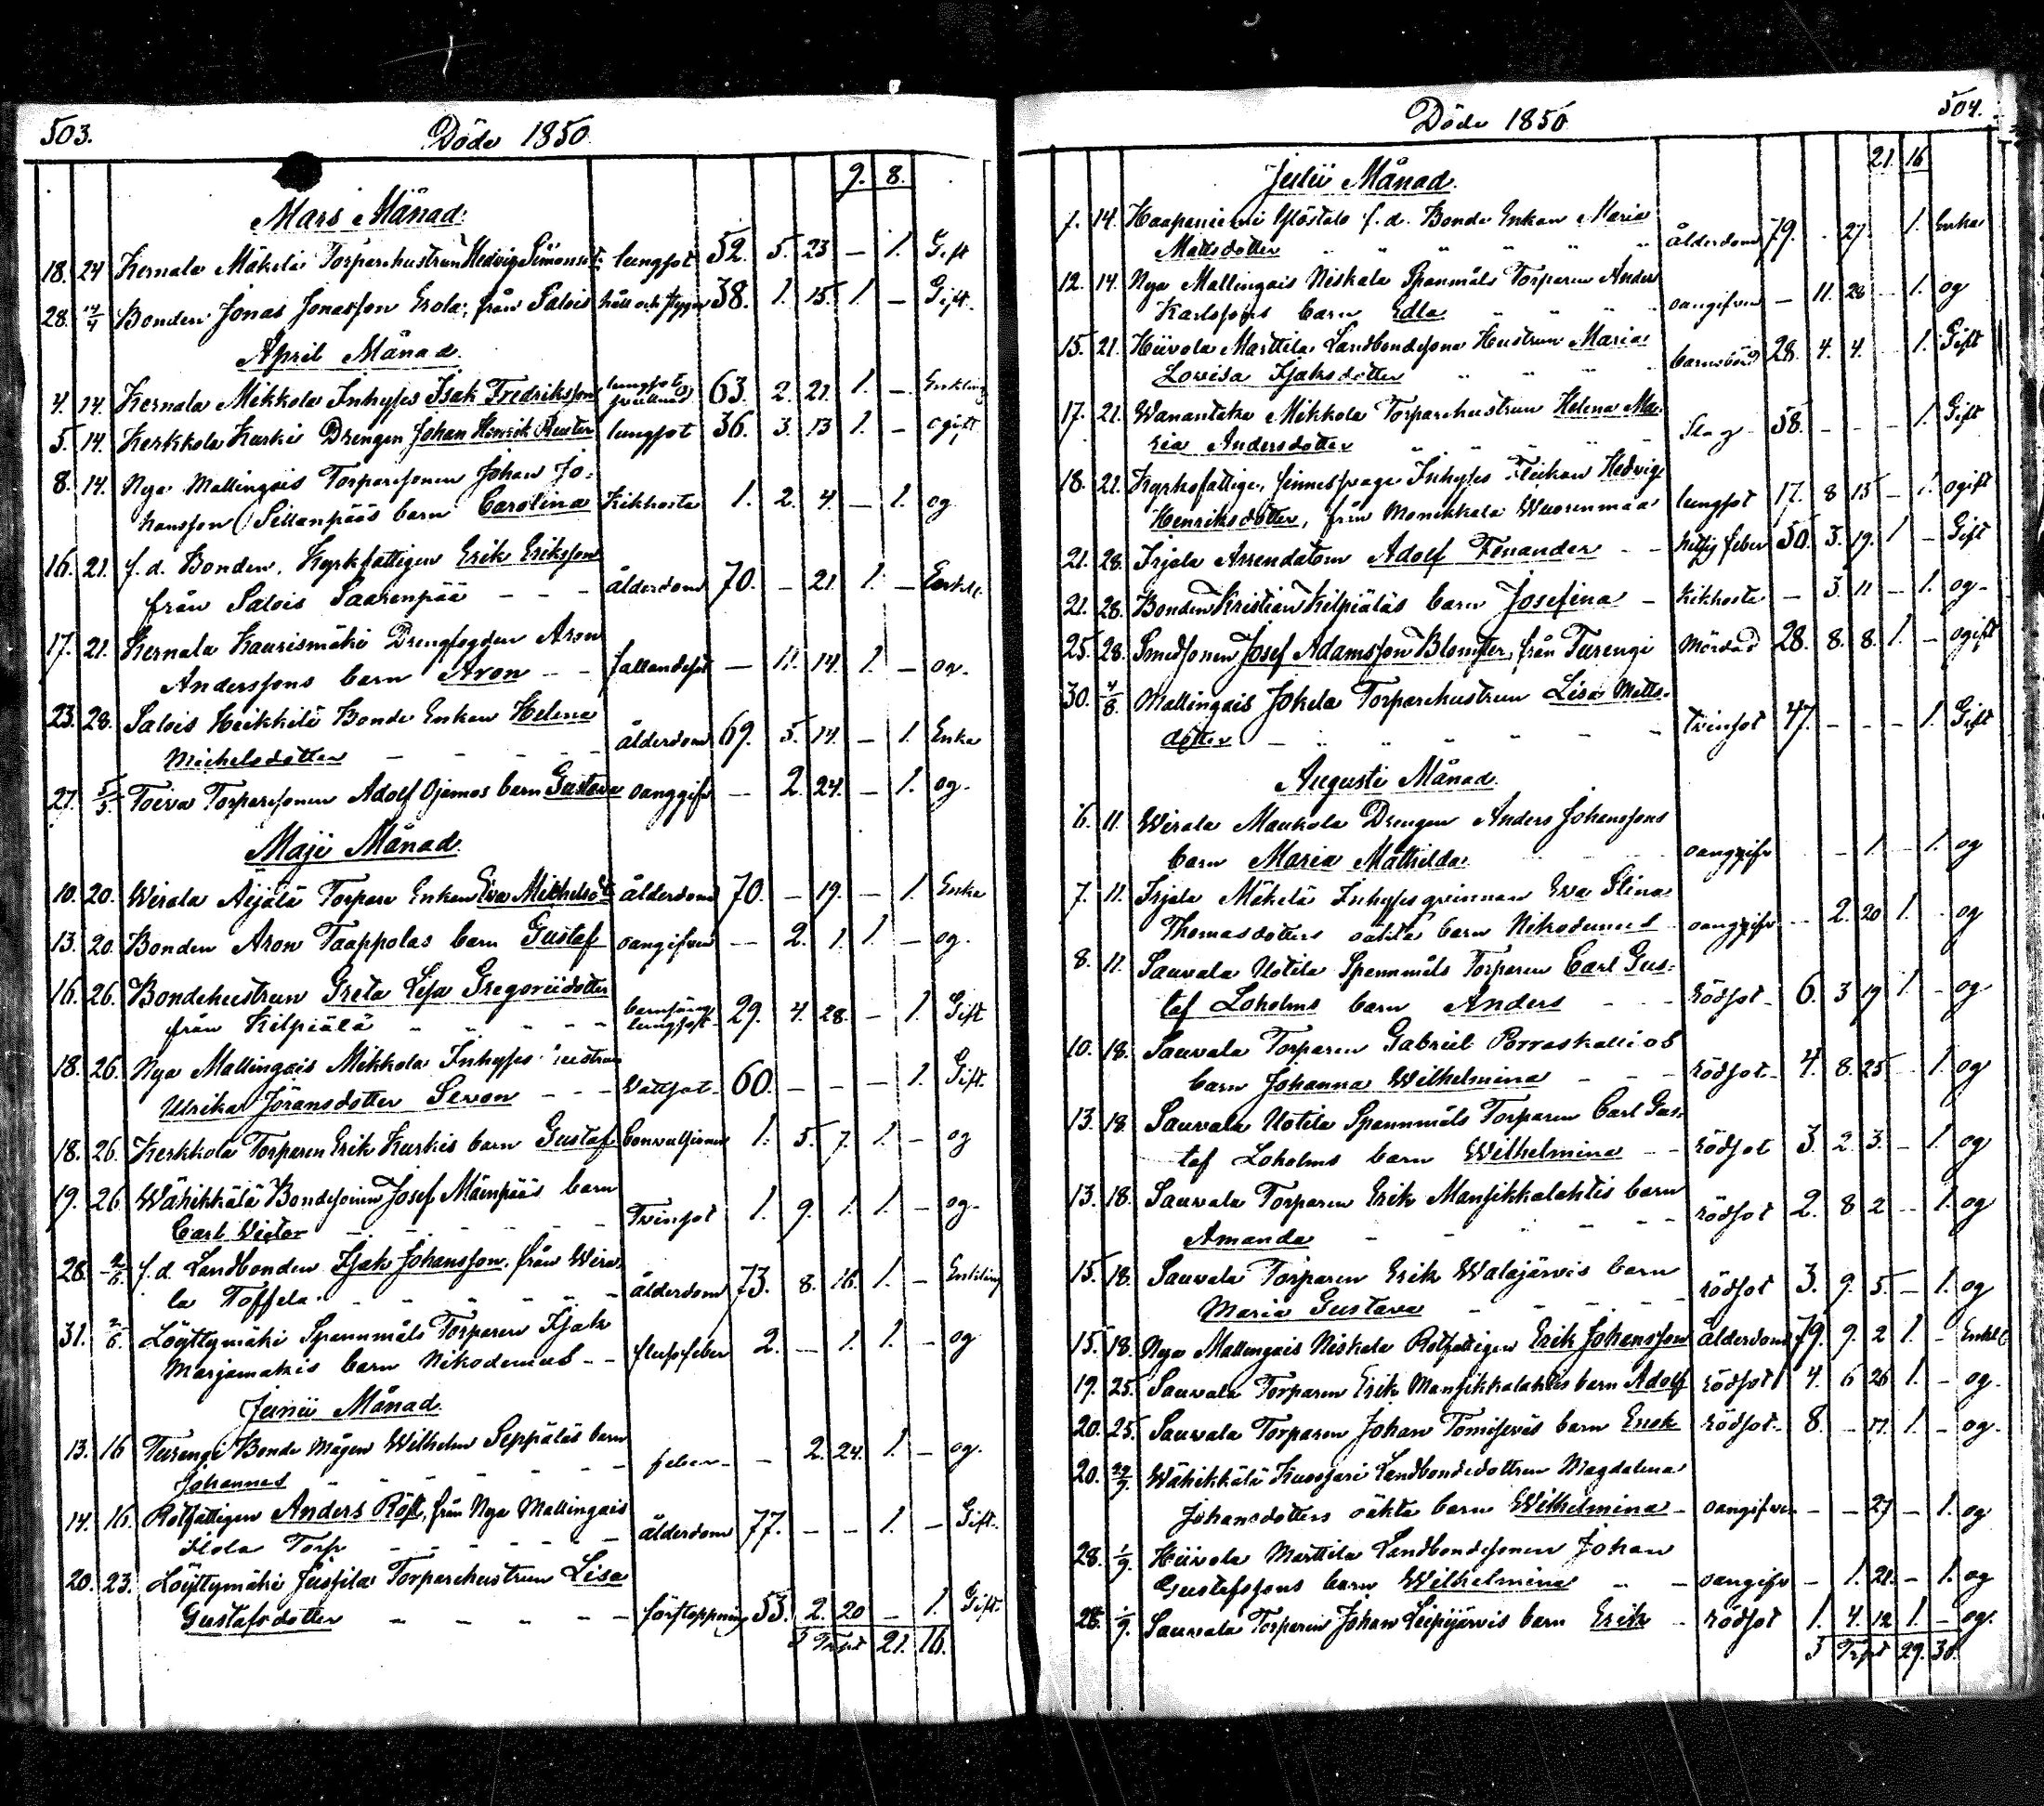 503.
Döde 1850.
9. 8.
Mars Månad.
18. 24 Kernala Mäkelä Torparehustrun Hedvig Simonsd:r lungsot 52. 5. 23 — 1. Gift
28. 14/4 Bonden Jonas Jonasson Erola, från Salois håll och stygn 38. 1. 15. 1. — Gift.
April Månad.
4. 14. Kernala Mikkola Inhyses Isak Fredriksson lungsot 63. 2. 21. 1. — Enkling
5. 14. Kerkkola Kurki Drengen Johan Henrik Reuter lungsot 36. 3. 13 1. — ogift
8. 14. Nya Mallingais Torparesonen Johan Jo-
hansson (Sillanpääs barn Carolina Kikhosta 1. 2. 4. — 1. og
16. 21. f. d. Bonden, Kyrkfattigen Erik Eriksson
från Salois Saarenpää - - - ålderdom 70. — 21. 1. — Enkl.
17. 21. Kernala Kaurismäki Drengfogden Aron
Anderssons barn Aron - - fallandesot — 11. 14. 1. — og.
23. 28. Salois Heikkilä Bonde Enkan Helena
Michelsdotter - - - - - ålderdom 69. 5. 14. — 1. Enka
27. 5/5 Toiva Torparesonen Adolf Ojamos barn Gustava oanggifv — 2. 24. — 1. og.
Maji Månad.
10. 20. Wirala Äijälä Torpare Enkan Eva Michelsd:r ålderdom 70. — 19. — 1. Enka
13. 20. Bonden Aron Taappolas barn Gustaf oangifven — 2. 1. 1. — og.
16. 26. Bondehustrun Greta Lisa Gregoriidotter
från Kilpiälä - - - - - barnsäng lungsot 29. 4. 28. — 1. Gift
18. 26. Nya Mallingais Mikkola Inhyses hustrun
Ulrika Jöransdotter Sevon - - - Vattsot 60. — — — 1. Gift.
18. 26. Kerkkola Torparen Erik Kurkis barn Gustaf Convulsioner 1. 5. 7. 1. — og
19. 26 Wähikkälä Bondesonen Josef Mäenpääs barn
Carl Victor - - - - - Tvinsot 1. 9. 1. 1. — og.
28. 2/6. f. d. Landbonden Isak Johansson, från Wira-
la Toffela. - - - - - ålderdom 73. 8. 16. 1. — Enkling
31. 2/6. Löyttymäki Spannmåls Torparen Isak
Marjamäkis barn Nikodemus - - slupfeber 2. — 1. 1. — og
Junii Månad.
13. 16 Turengi Bonde Mågen Wilhelm Seppäläs barn
Johannes - - - - - feber — 2. 24. 1. — og.
14. 16. Rotfattigen Anders Röst, från Nya Mallingais
Ilola Torp - - - - - ålderdom 77. — — 1. — Gift.
20. 23. Löyttymäki Jussila Torparehustrun Lisa
Gustafsdotter - - - - - förstoppning 53. 2. 20 — 1. Gift.
Trspt 21. 16.
504.
Döde 1850
21. 16
Julii Månad.
7. 14. Haapaniemi f. d. Bonde Enkan Maria
Mattsdotter ålderdom 79. - 27. 1. Enka
12. 14. Nya Mallingais Niskala Spanmåls Torparen Anders
Karlssons barn Edla oangifven — 11. 28 — 1. og
15. 21. Hiivola Marttila Landbondesons Hustrun Maria
Lovisa Isaksdotter barnsbörd 28. 4. 4. 1. Gift
17. 21. Wanantaka Mikkola Torparehustrun Helena Ma-
ria Andersdotter Slag 58. - - - 1. Gift
18. 21. Kyrkofattige, sinnessvage Inhyses Flickan Hedvig
Henriksdotter, från Monikkala Wuorenmaa lungsot 17. 8 15 — 1. ogift
21. 28. Irjala Arrendatorn Adolf Fonander - - hettig feber 50. 3. 19. 1 — Gift
21. 28. Bonden Kristian Kilpiäläs barn Josefina - Kikhosta — 3. 11 — 1. og.
25. 28. Smedsonen Josef Adamsson Blomster, från Turengi Mördad 28. 8. 8. 1. — ogift
30. 4/8. Mallingais Jokela Torparehustrun Lisa Matts-
dotter - tvinsot 47. - - - 1. Gift
Augusti Månad.
6. 11. Wirala Maukola Drengen Anders Johanssons
barn Maria Mathilda oanggifv - 1. - 1. og
7. 11. Irjala Mäkelä Inhyses qvinnan Eva Stina
Thomasdotters oäkta barn Nikodemus oanggifv - 2. 20 1. - og
8. 11. Sauvala Uotila Spannmåls Torparen Carl Gus-
taf Loholms barn Anders - - - rödsot 6. 3 19 1. - og
10. 18. Sauvala Torparen Gabriel Porraskallios
barn Johanna Wilhelmina - - - rödsot 4. 8. 25 - 1. og
13. 18. Sauvala Uotila Spannmåls Torparen Carl Gus-
taf Loholms barn Wilhelmina - - rödsot 3. 2. 3. - 1. og
13. 18. Sauvala Torparen Erik Mansikkalahtis barn
Amanda - - - - - rödsot 2. 8 2 - 1. og
15. 18. Sauvala Torparen Erik Walajärvis barn
Maria Gustava - - - - rödsot 3. 9. 5. - 1. og
15. 18. Nya Mallingais Niskala Rotfattigen Erik Johansson ålderdom 79. 9. 2 1. - Enkl.
19. 25. Sauvala Torparen Erik Mansikkalahtis barn Adolf rödsot 4. 6 26 1. - og.
20. 25. Sauvala Torparen Johan barn Enok rödsot 8. - 17. 1. - og.
20. Wähikkälä Kuosjari Landbondedottren Magdalena
Johansdotters oäkta barn Wilhelmina - oangifven - - 27 - 1. og
28. 1/9. Hiivola Marttila Landbondesonen Johan
Gustafssons barn Wilhelmina - - oangifv - 1. 21. - 1. og
28. 1/9. Sauvala Torparen Johan Leipijärvis barn Erik - rödsot 1. 4. 12 1. - og.
Trspt 29. 30.